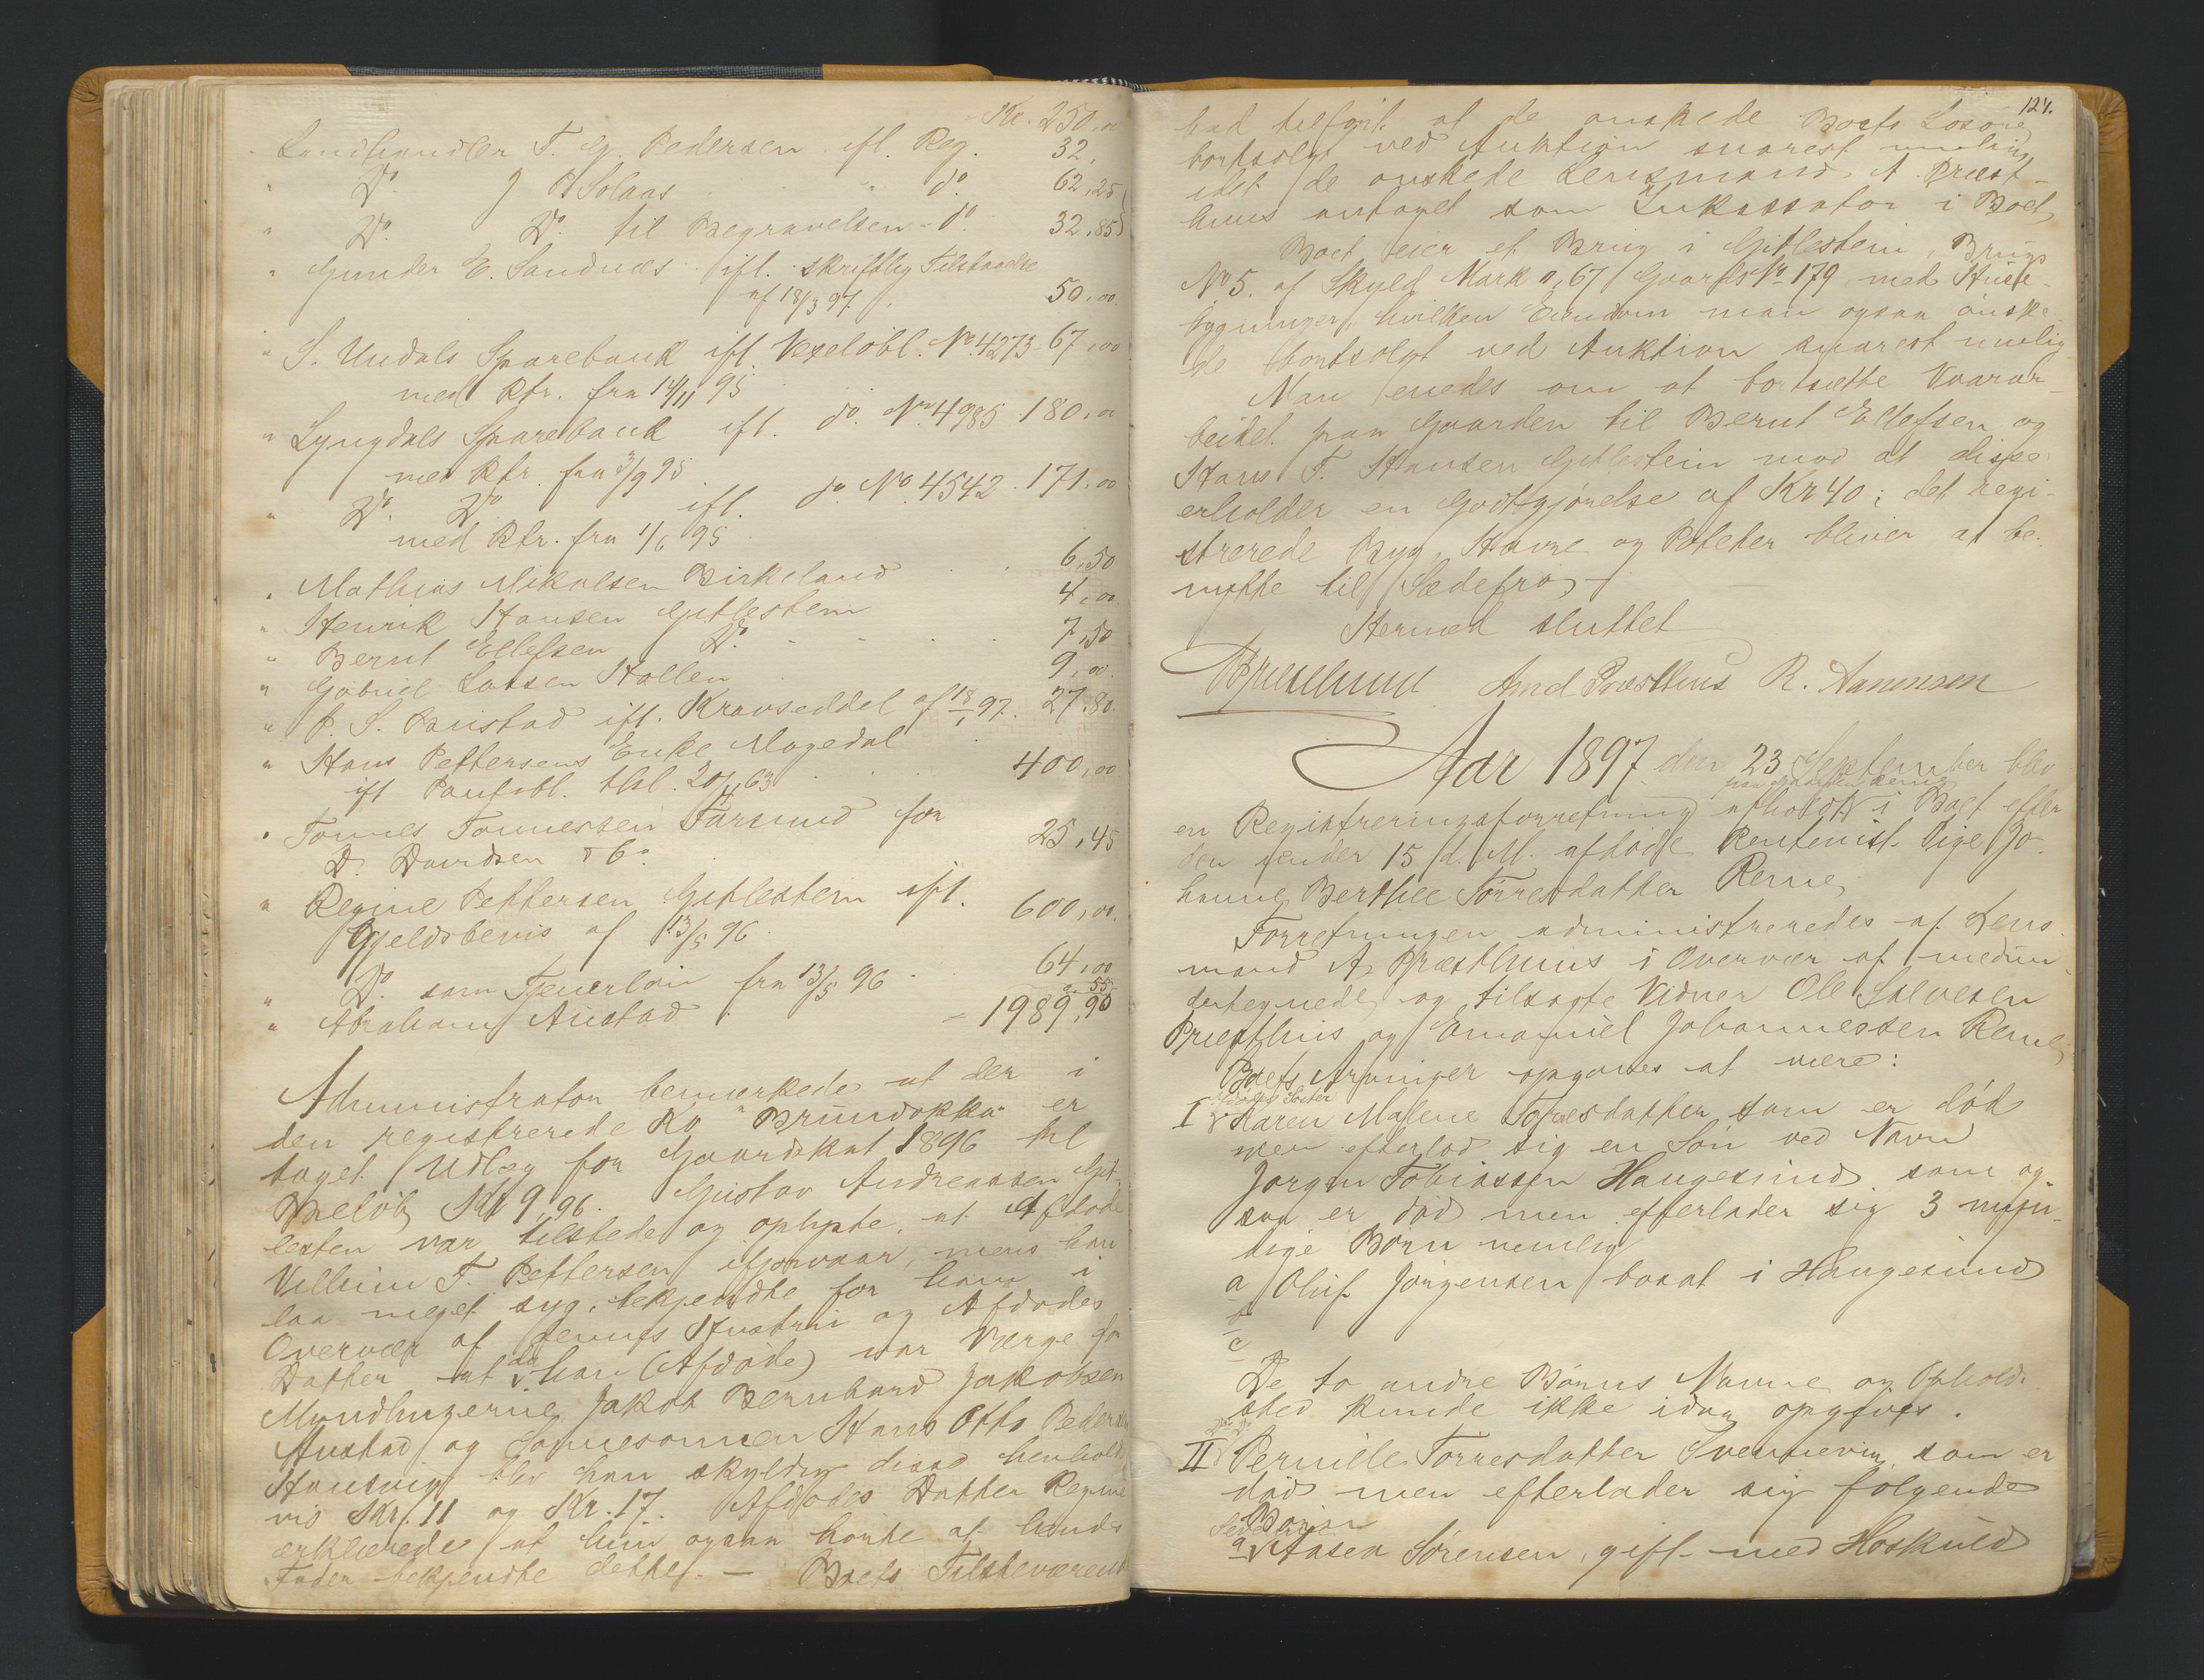 Kr. 250,00
Landhandler T. G. Pedersen ifl. Reg. 32,
" Do. J P Solaas " do. 62,25
" Do. Do. til Begravelsen - do. 32,85
" Gunder E. Sandnæs ifl. skriftlig Tilstaaelse
af 18/3 97. 50,00
" S. Undals Sparebank ifl. Vexelobl. No. 4273 - 67,00
med Rtr. fra 14/11 95
" Lyngdals Sparebank ifl. do. No 4985 180,00
med Rtr. fra 3/9 95
" Do. Do ifl. do No. 4542. 171,00
med Rtr. fra 1/6 95
" Mathias Mikalsen Birkeland 6,50
" Henrik Hansen Gitlestein 4,00
" Bernt Ellefsen Do. 7,50
" Gabriel Larsen Hallen 9,00
" P. S. ifl. Kravseddel af 18/1 97. 27,80
" Hans Pettersens Enke Magedal
ifl Pantobl. thl. 20/11 63 400,00
" Tønnes Tønnessen Farsund for
D. Davidsen & Co. 25,45
" Regine Pettersen Gitlestein ifl.
Gjeldsbevis af 13/5 96 600,00
" Do. som Tjenerløn fra 13/5 96 64,00
" Abraham Austad 55
= 1989,90
Administrator bemærkede at der i
den registrerede Ko "Brundokka" er
taget Udlæg for Gaardskat 1896 til
Beløb Kr 9,96. Gustav Andreassen Git-
lesten var tilstede og oplyste, at Afdøde
Vilhim T. Pettersen ifjorvaar, mens han
laa meget syg, bekjendte for ham i
Overvær af dennes Hustru og Afdødes
Datter at da han (Afdøde) var Værge for
Myndlingerne Jakob Bernhard Jakobsen
Austad og Hans Otto Pedersen
blev han skyldig disse henholds
vis Kr. 11 og Kr. 17. Afdødes Datter Regine
erklærede at hun ogsaa hørte af hendes
Fader bekjendte dette. — Boets Tilstedeværende
124.
had tilføit at de ønskede Boets Løsøre
bortsolgt ved Auktion snarest mulig
idet de ønskede Lensmand A Præst-
huus antaget som Inkassator i Boet
Boet eier et Brug i Gitlestein, Brugs
No 5. af Skyld Mark 0,67 Gaards No 179 med Huse-
bygninger, hvilken Eiendom man ogsaa ønske-
de bortsolgt ved Auktion snarest mulig
Man enedes om at bortsætte Vaarar-
beidet paa Gaarden til Bernt Ellefsen og
Hans T. Hansen Gitlestein mod at disse
erholder en Godtgjørelse af Kr 40; det regi-
strerede Byg, Havre og Poteter bliver at be-
nytte til Sædefrø —
Hermed sluttet
Arnd Præsthuus R. Aanensen
Aar 1897 den 23 September blev
paa Gaarden Reme
en Registreringsforretning afholdt i Boet efter
den under 15 d. M. afdøde Rentenist. Pige Jo-
hanne Berthee Tørresdatter Reme
Forretningen administreredes af Lens-
mand A. Præsthuus i Overvær af medun-
dertegnede og tilsagte Vidner Ole Salvesen
Præsthuus og Emanuel Johannessen Reme
Boets Arvinger opgaves at være:
Afdødes Søster
I Karen Malene Tørresdatter, som er død
men efterlod sig en Søn ved Navn
Jørgen Tobiassen Haugesund, som og
saa er død men efterlader sig 3 myn-
dige Børn nemlig
a Oluf Jørgensen, bosat i Haugesund
b
c
De to andre Børns Navne og Opholds-
sted kunde ikke idag opgives.
Do. Do.
II Pernille Tørresdatter Svennevig, som er
død men efterlader sig følgende
Børn
a Aasen Sørensen, gift med Høskuld